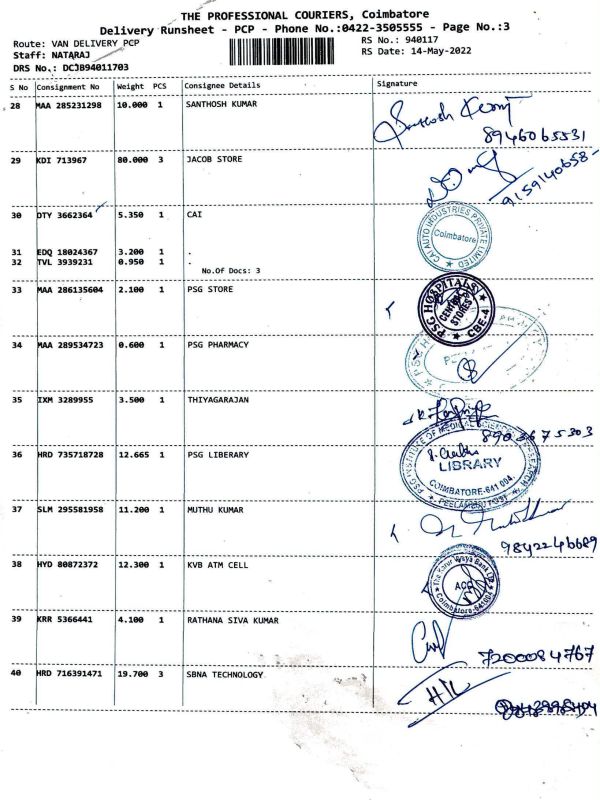 THE PROFESSIONAL COURIERS, Coimbatore
Delivery Runsheet - PCP - Phone No.:0422-3505555 - Page No.:3
Route: VAN DELIVERY PCP
RS No.: 940117
Staff: NATARAJ
RS Date: 14-May-2022
DRS No.: DCJB94011703
S No Consignment No Weight PCS Consignee Details Signature
28 MAA 285231298 10.000 1 SANTHOSH KUMAR
Santhosh Kumar
8946065531
29 KDI 713967 80.000 3 JACOB STORE
9159140658
30 DTY 3662364 5.350 1 CAI
CAI AUTO INDUSTRIES PRIVATE LIMITED
Coimbatore
31 EDQ 18024367 3.200 1 .
32 TVL 3939231 0.950 1 .
No.Of Docs: 3
33 MAA 286135604 2.100 1 PSG STORE
PSG HOSPITALS
CENTRAL STORES
CBE-4
34 MAA 289534723 0.600 1 PSG PHARMACY
35 IXM 3289955 3.500 1 THIYAGARAJAN
8903675303
36 HRD 735718728 12.665 1 PSG LIBERARY
PSG INSTITUTE OF MEDICAL SCIENCES & RESEARCH
LIBRARY
COIMBATORE-641 004.
PEELAMEDU POST
37 SLM 295581958 11.200 1 MUTHU KUMAR
9842246689
38 HYD 80872372 12.300 1 KVB ATM CELL
The Karur Vysya Bank Ltd.
Coimbatore-641004
39 KRR 5366441 4.100 1 RATHANA SIVA KUMAR
7200084767
40 HRD 716391471 19.700 3 SBNA TECHNOLOGY